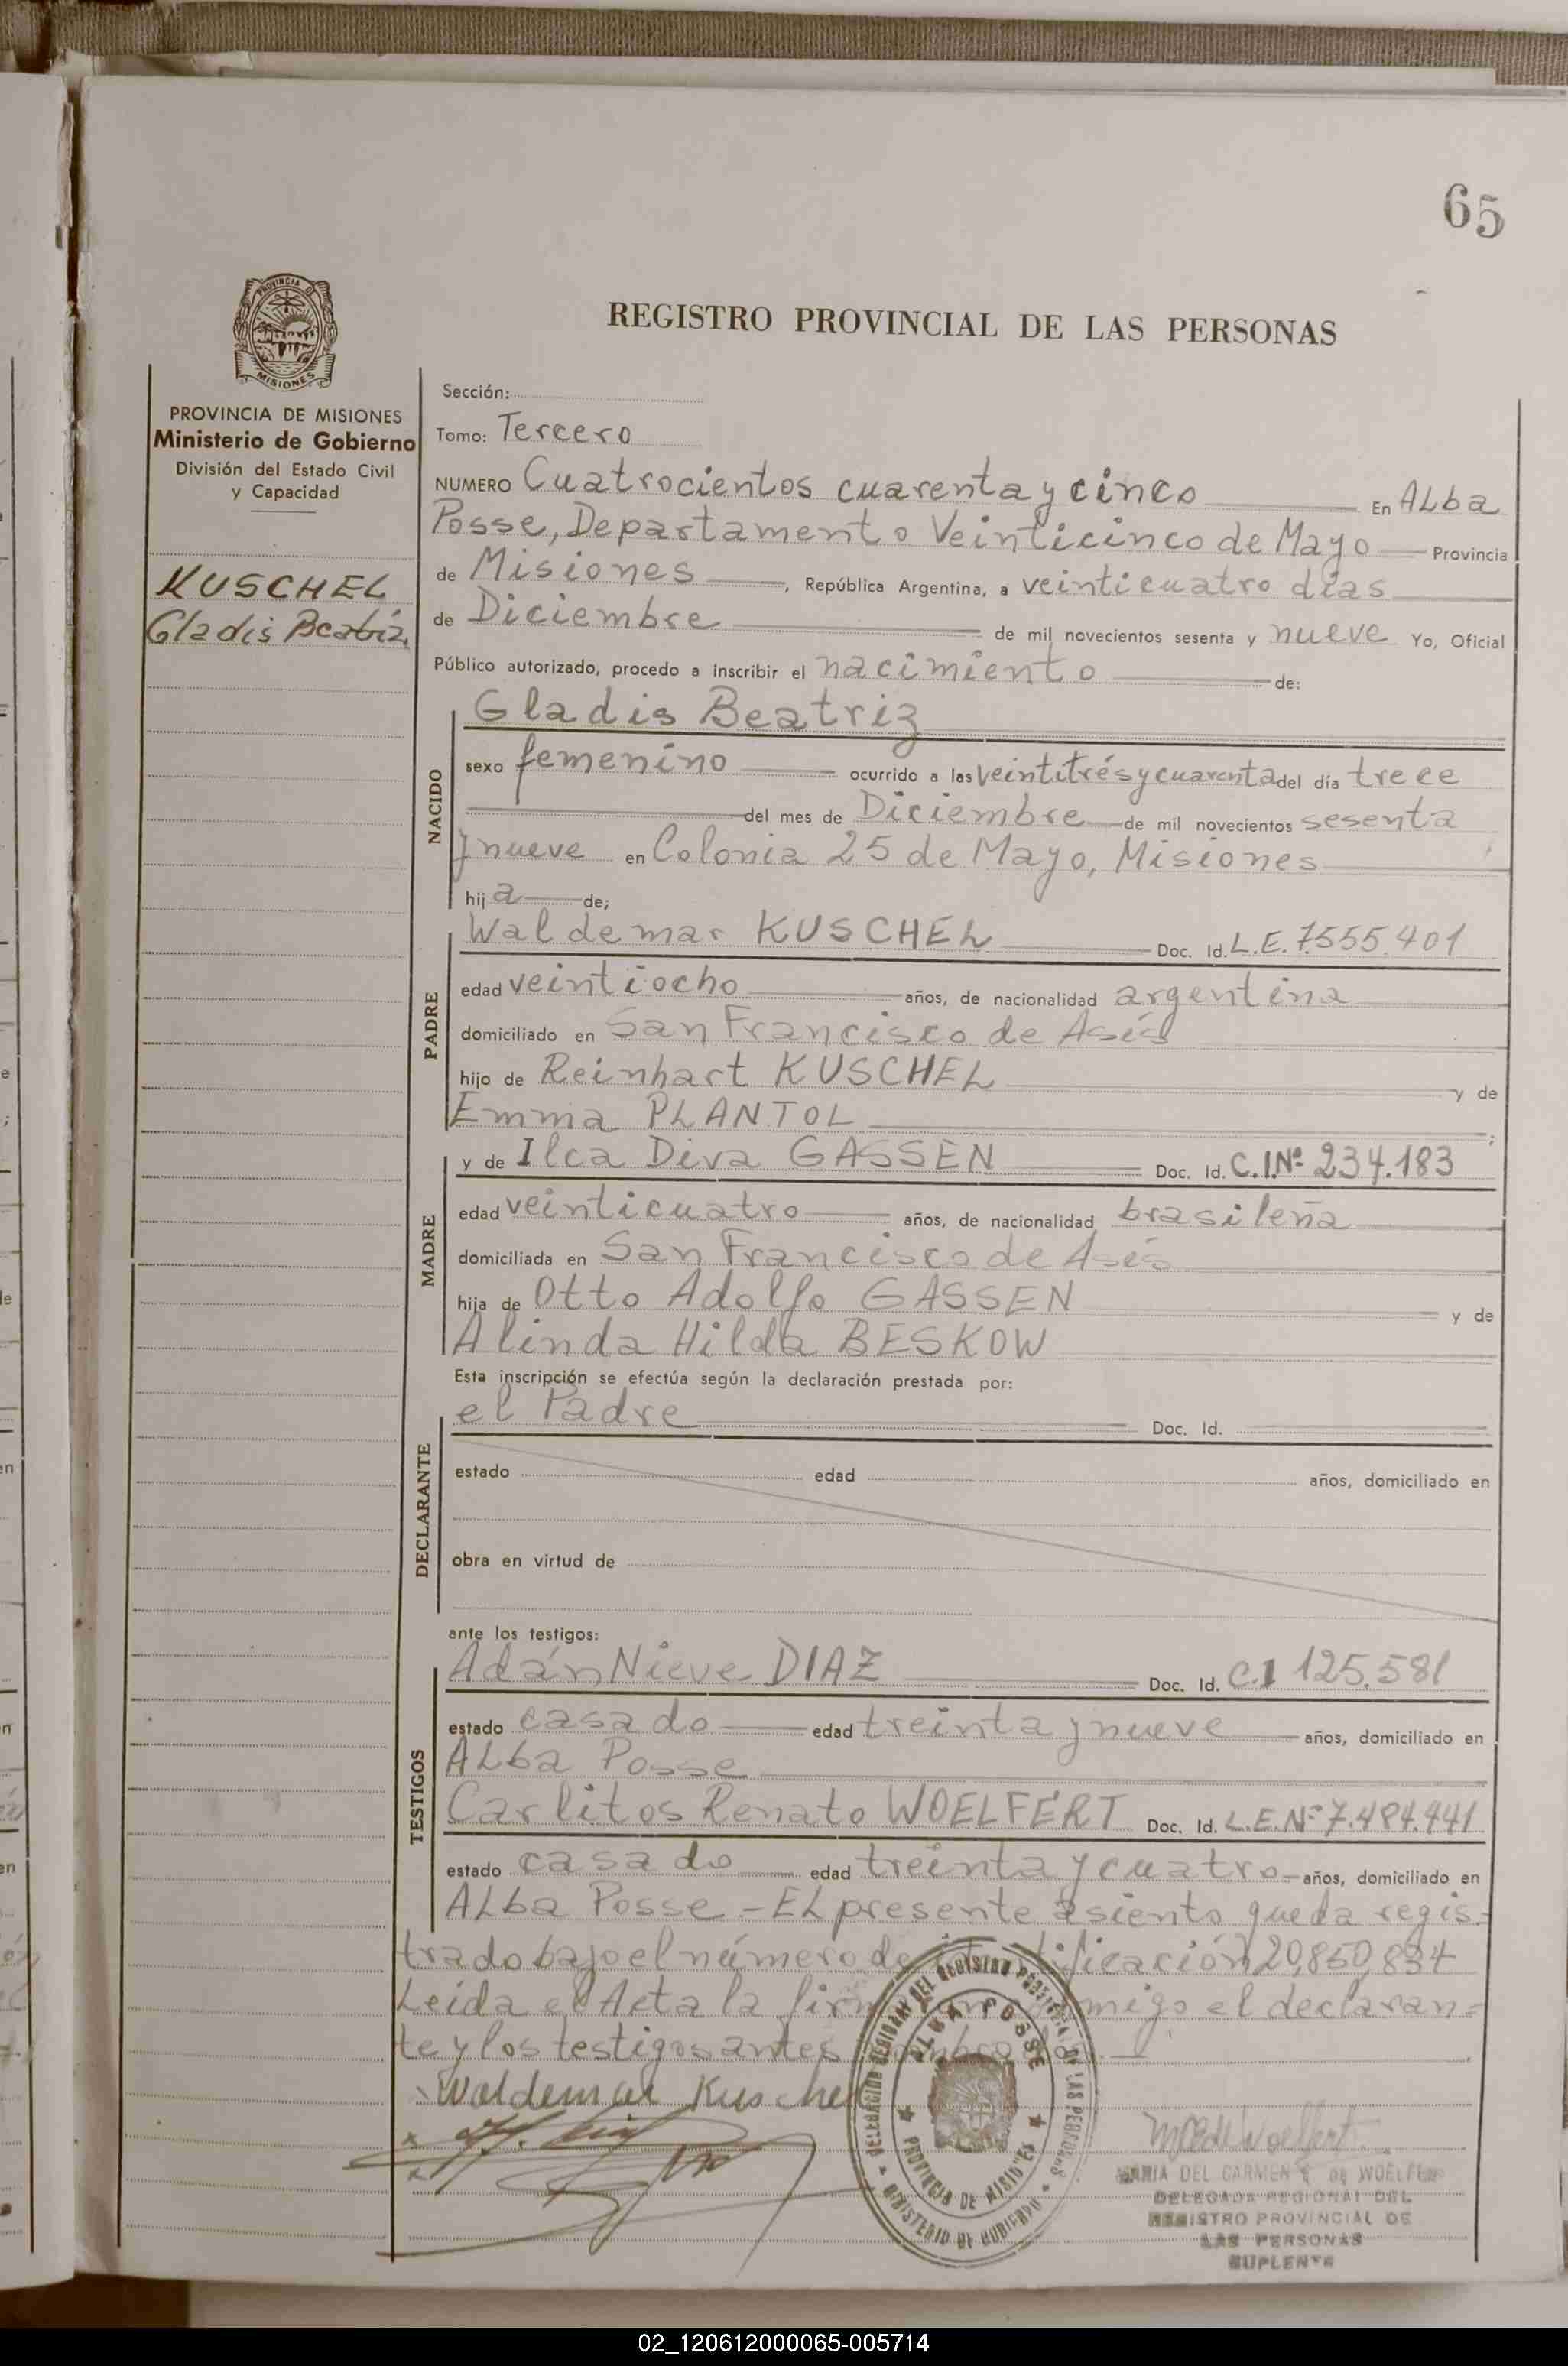 65
PROVINCIA DE
MISIONES
REGISTRO PROVINCIAL DE LAS PERSONAS
PROVINCIA DE MISIONES
Ministerio de Gobierno
División del Estado Civil
y Capacidad
KUSCHEL
Gladis Beatriz
Sección:
Tomo: Tercero
NUMERO Cuatrocientos cuarenta y cinco En ALba
Posse, Departamento Veinticinco de Mayo Provincia
de Misiones, República Argentina, a veinticuatro días
de Diciembre de mil novecientos sesenta y nueve Yo, Oficial
Público autorizado, procedo a inscribir el nacimiento de:
NACIDO
Gladis Beatriz
sexo femenino ocurrido a las veintitrés y cuarenta del día trece
del mes de Diciembre de mil novecientos sesenta
y nueve en Colonia 25 de Mayo, Misiones
hija de;
PADRE
Waldemar KUSCHEL Doc. Id. L.E. 7.555.401
edad veintiocho años, de nacionalidad argentina
domiciliado en San Francisco de Asís
hijo de Reinhart KUSCHEL y de
Emma PLANTOL ;
MADRE
y de Ilca Diva GASSEN Doc. Id. C.I.Nº 234.183
edad veinticuatro años, de nacionalidad brasileña
domiciliada en San Francisco de Asís
hija de Otto Adolfo GASSEN y de
Alinda Hilda BESKOW
Esta inscripción se efectúa según la declaración prestada por:
DECLARANTE
el Padre Doc. Id.
estado edad años, domiciliado en
obra en virtud de
ante los testigos:
TESTIGOS
Adán Nieve DIAZ Doc. Id. C.I 125.581
estado casado edad treinta y nueve años, domiciliado en
ALba Posse
Carlitos Renato WOELFERT Doc. Id. L.E.Nº 7.484.441
estado casado edad treinta y cuatro años, domiciliado en
ALba Posse - EL presente asiento queda regis-
trado bajo el número de identificación 20,850,834
Leida el Acta la firman conmigo el declaran-
te y los testigos antes nombrados.
Waldemar Kuschel
DELEGACION REGIONAL DEL REGISTRO PROVINCIAL DE LAS PERSONAS
ALBA POSSE
PROVINCIA DE MISIONES
MINISTERIO DE GOBIERNO
MARIA DEL CARMEN DE WOELFERT
DELEGADA REGIONAL DEL
REGISTRO PROVINCIAL DE
LAS PERSONAS
SUPLENTE
02_120612000065-005714